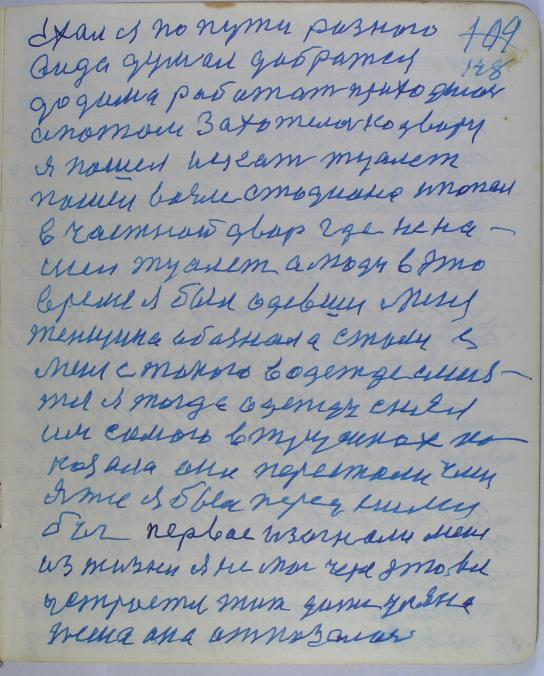 109
ехал я по пути разного
148
вида думал добратся
до дома работат приходилос
а потом захотелос ко двору
я пошел искат туалет
пошел возле стадиона и попал
в частной двор где не на-
шел туалет а люди в это
время я был одевши меня
женщина обознала стали с
меня с такого в одежде смея-
тся я тогда одежду снял
им самого в трусиках по-
казала они перестали
я был перед ними
был первое изогнали меня
из жизни я не мог через это
устроется там даже
она отказалас